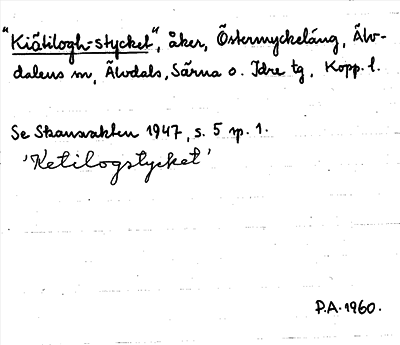 "Kiätilogh-stycket", åker, Östermyckeläng, Älv-
dalens sn, Älvdals, Särna o. Idre tg, Kopp. l.
Se Skansvakten 1947, s. 5 sp. 1.
'Ketilogstycket'
P.A. 1960.